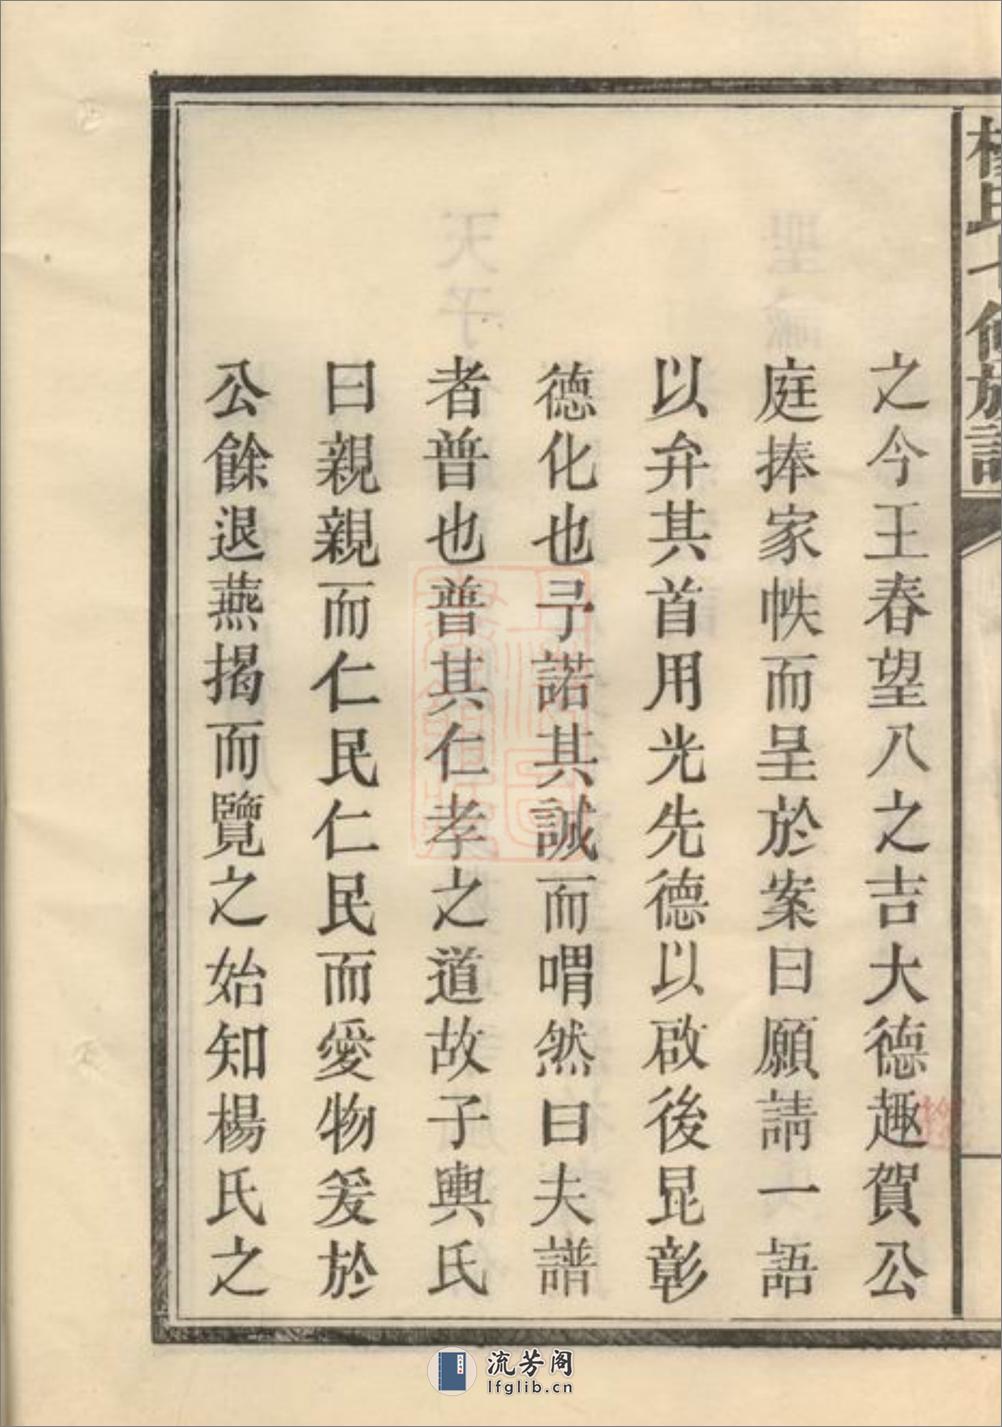 之今王春望八之吉大德趣賀公
庭捧家帙而呈於案曰願請一語
以弁其首用光先德以啟後昆彰
德化也予諾其誠而喟然曰夫譜
者普也普其仁孝之道故子輿氏
曰親親而仁民仁民而愛物爰於
公餘退燕揭而覽之始知楊氏之
流芳阁
lfglib.cn